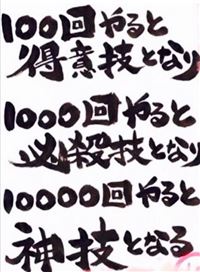 100回やると
得意技となり
1000回やると
必殺技となり
10000回やると
神技となる